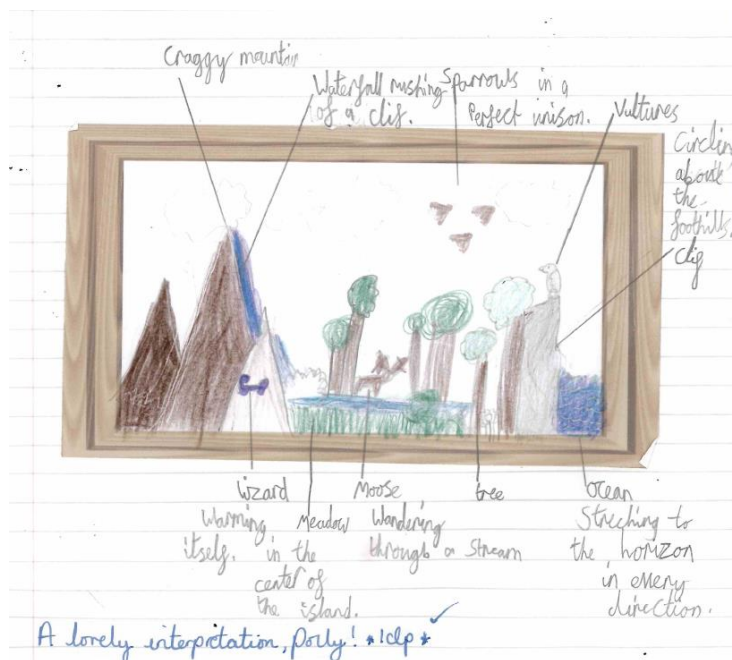 Craggy mountain
Waterfall rushing
of a clif.
Sparrows in a
Perfect unison.
Vultures
Circling
above
the
foothills.
clif
Wizard
Warming
itself.
Meadow
in the
center of
the island.
Moose
Wandering
through a Stream
tree
Ocean
Streching to
the horizon
in every
direction.
A lovely interpretation, Polly! *1dp*